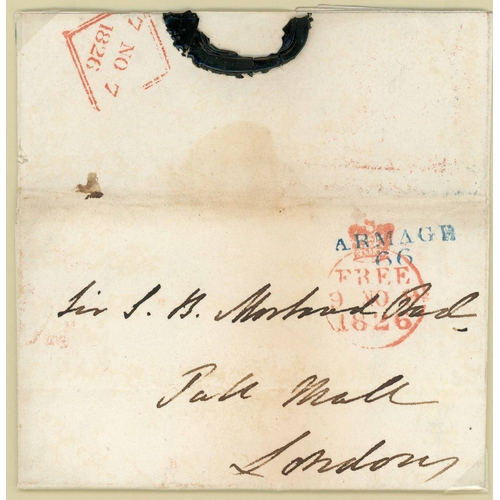 7 NO 7
1826
ARMAGH
66
FREE
9 NO 9
1826
Sir S. B. Morland
Pall Mall
London